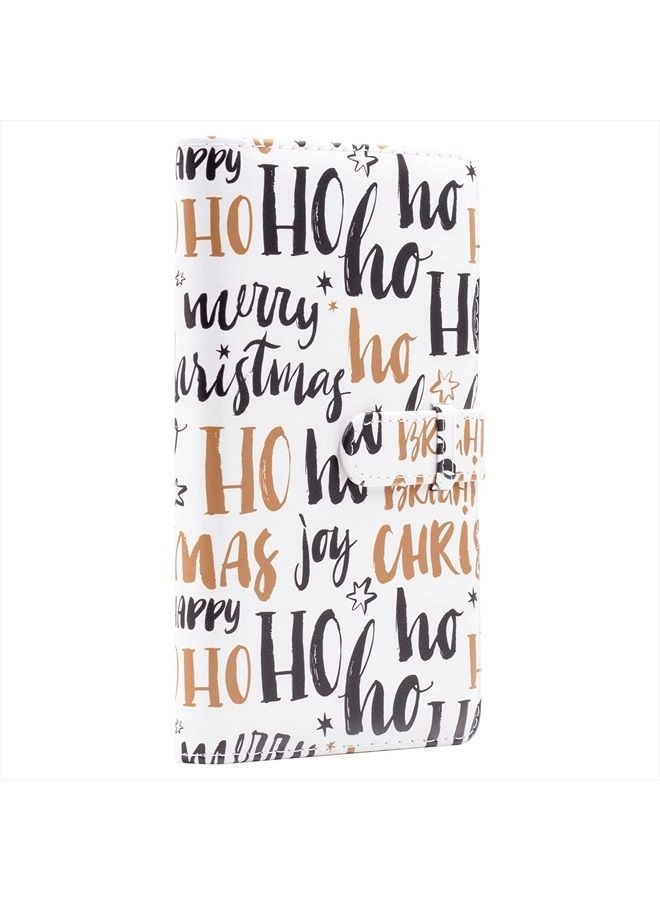 HAPPY
HO HO ho
ho
merry HO
ho
christmas
BRIGHT
HO ho
BRIGHT
MAS joy CHRIS
HAPPY
HO HO ho
ho
merry